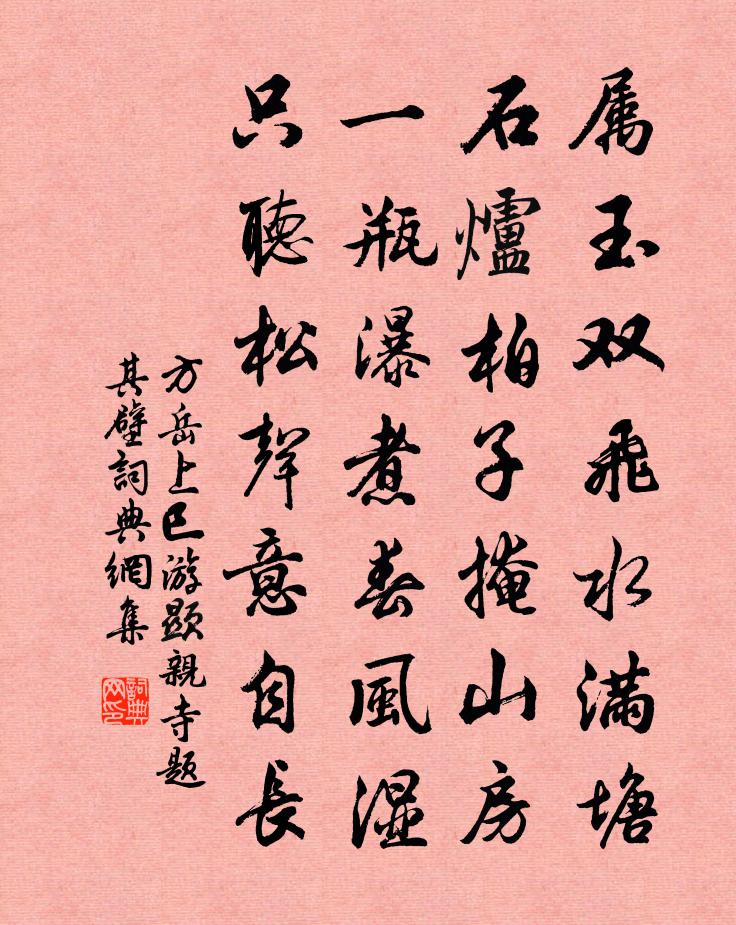 属玉双飛水满塘
石爐柏子掩山房
一瓶瀑煮春風湿
只聽松聲意自長
方岳上巳游顯親寺題
其壁詞典網集
詞典网印